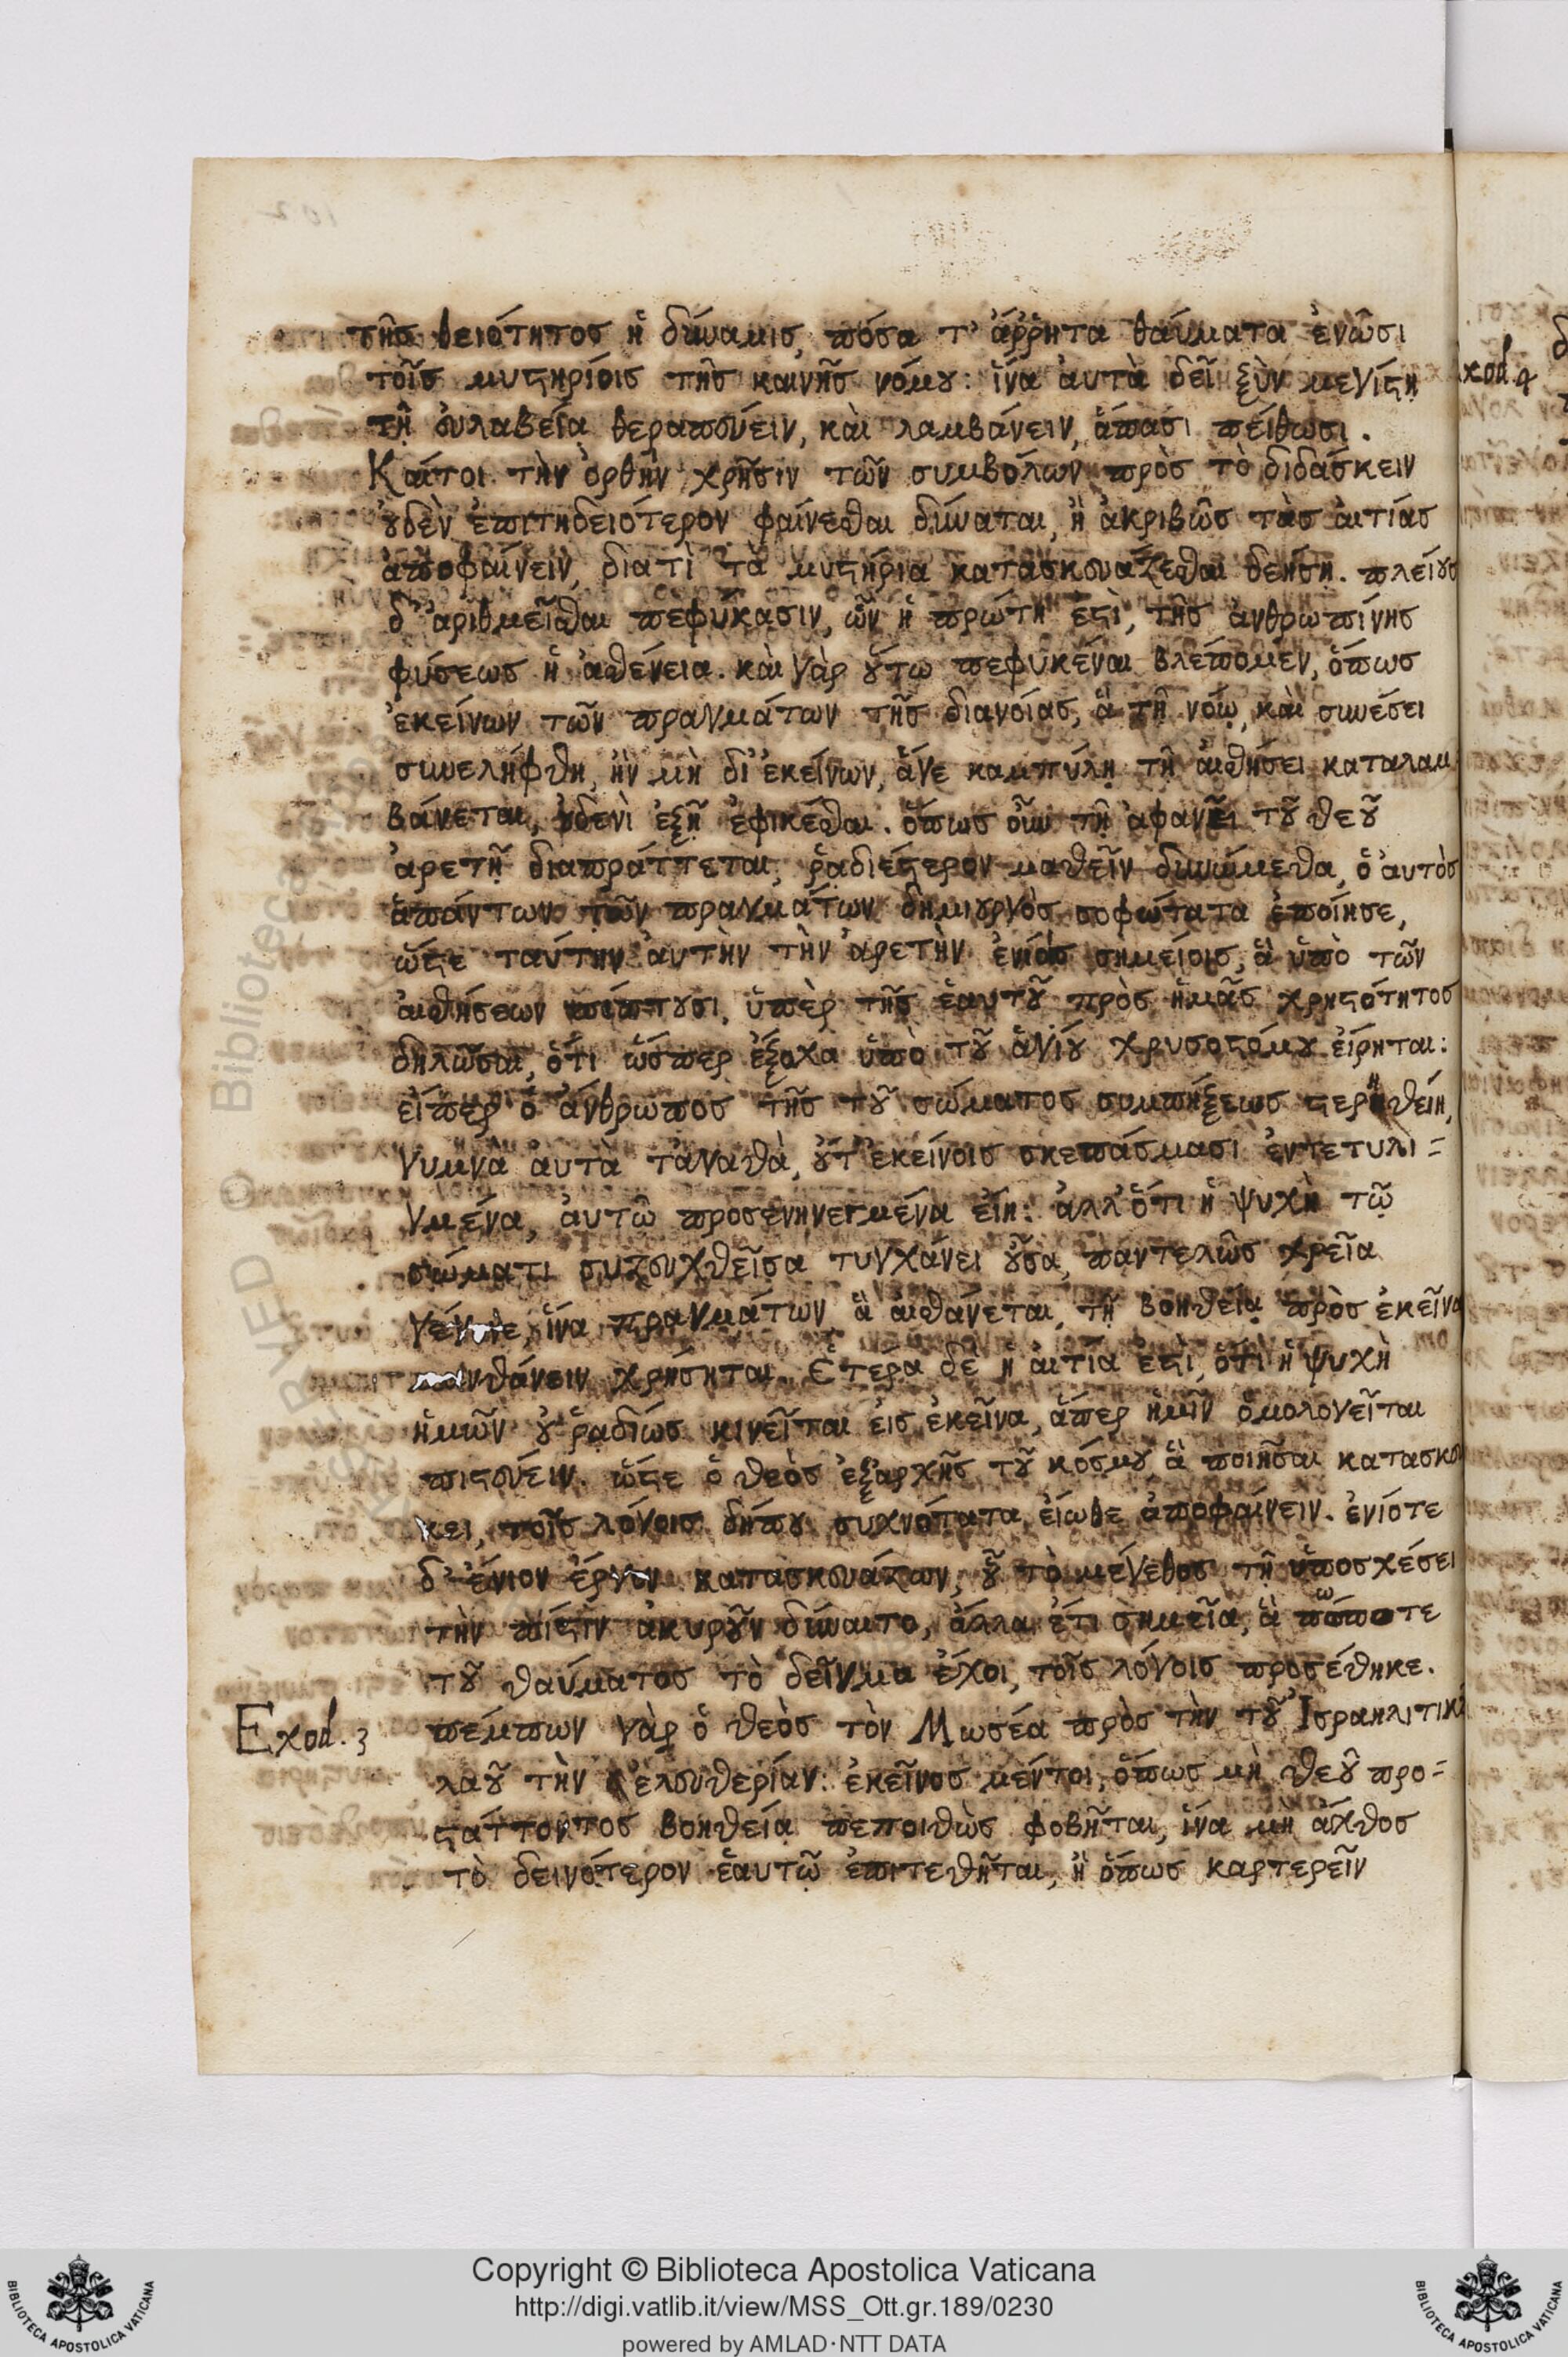 τῆς θειότητος ἡ δύναμις, πόσα τ' ἄῤῥητα θαύματα ἐνῶσι
τοῖς μυστηρίοις τῆς καινῆς νόμου: ἵνα ἀυτὰ δεῖ ξὺν μεγίστῃ
τῇ ἐυλαβεία θεραπεύειν, κὰι λαμβάνειν, ἅπασι πείθωσι.
Καίτοι τὴν ὀρθὴν χρῆσιν τῶν συμβόλων πρὸς τὸ διδάσκειν
οὐδὲν ἐπιτηδειότερον φαίνεσθαι δύναται, ἢ ἀκριβῶς τὰς ἀιτίας
ἀποφαίνειν, διατὶ τὰ μυστήρια κατασκευάζεσθαι δεήσῃ. πλείους
δ' ἀριθμεῖσθαι πεφύκασιν, ὧν ἡ πρώτη ἐστὶ, τῆς ἀνθρωπίνης
φύσεως ἡ ἀσθένεια. κὰι γὰρ οὕτω πεφυκέναι βλέπομεν, ὅπως
ἐκείνων τῶν πραγμάτων τῆς διανοίας, ἃ τῇ νόῳ, κὰι συνέσει
συνελήφθη, ἣν μὴ δι' ἐκείνων, ἅγε καμπύλῃ τῇ ἀισθήσει καταλαμ
βάνεται, οὐδενὶ ἐξῇ ἐφικέσθαι. ὅπως οὖν τῇ ἀφανεῖ τοῦ θεοῦ
ἀρετῇ διαπράττεται, ῥαδιέστερον μαθεῖν δυνώμεθα, ὁ ἀυτὸς
ἁπάντων τῶν πραγμάτων δημιουργὸς σοφώτατα ἐποίησε,
ὥστε ταύτην ἀυτὴν τὴν ἀρετὴν ἐνίοις σημείοις, ἃ ὑπὸ τῶν
ἀισθήσεων πίπτουσι, ὑπὲρ τῆς ἑαυτοῦ πρὸς ἡμᾶς χρηστότητος
δηλῶσαι, ὅτι ὥσπερ ἔξοχα ὑπὸ τοῦ ἁγίου χρυσοστόμου ἐίρηται:
εἴπερ ὁ ἄνθρωπος τῆς τοῦ σώματος συμπήξεως στερηθείη,
γυμνὰ ἀυτὰ τἀγαθὰ, οὔτ' ἐκείνοις σκεπάσμασι ἐντετυλι=
γμένα, ἀυτῶ προσενηνεγμένα ἐίη: ἀλλ' ὅτι ἡ ψυχὴ τῷ
σώματι συζευχθεῖσα τυγχάνει οὖσα, παντελῶς χρεῖα
ἵνα πραγμάτων, ἃ ἀισθάνεται, τῇ βοηθεία πρὸς ἐκεῖνα
μανθάνειν χρήσηται. Ἑτέρα δὲ ἡ ἀιτία ἐστὶ, ὅτι ἡ ψυχὴ
ἡμῶν οὐ ῥαδίως κινεῖται ἐις ἐκεῖνα, ἅπερ ἡμῖν ὁμολογεῖται
πιστεύειν. ὥστε ὁ θεὸς ἐξαρχῆς τοῦ κόσμου, ἃ ποιῆσαι κατασκευ
κει, τοῖς λόγοις δήπου συχνότατα ἐίωθε ἀποφαίνειν. ἐνίοτε
δ' ἔνιον ἔργον κατασκευάζων, οὗ τὸ μέγεθος τῇ ὑποσχέσει
τὴν πίστιν ἀκυροῦν δύναιτο, ἄλλα ἔτι σημεῖα, ἃ πώποτε
τοῦ θαύματος τὸ δεῖγμα ἔχοι, τοῖς λόγοις προσέθηκε.
Exod. 3 πέμπων γὰρ ὁ θεὸς τὸν Μωσέα πρὸς τὴν τοῦ Ἰσραηλιτικοῦ
λαοῦ τὴν ἐλευθερίαν: ἐκεῖνος μέντοι, ὅπως μὴ θεοῦ προ=
στάττοντος βοηθεία πεποιθὼς φοβῆται, ἵνα μὴ ἄχθος
τὸ δεινότερον ἑαυτῷ ἐπιτεθῆται, ἢ ὅπως καρτερεῖν
xod. 4
Copyright © Biblioteca Apostolica Vaticana
http://digi.vatlib.it/view/MSS_Ott.gr.189/0230
powered by AMLAD·NTT DATA
BIBLIOTECA APOSTOLICA VATICANA
BIBLIOTECA APOSTOLICA VATICANA